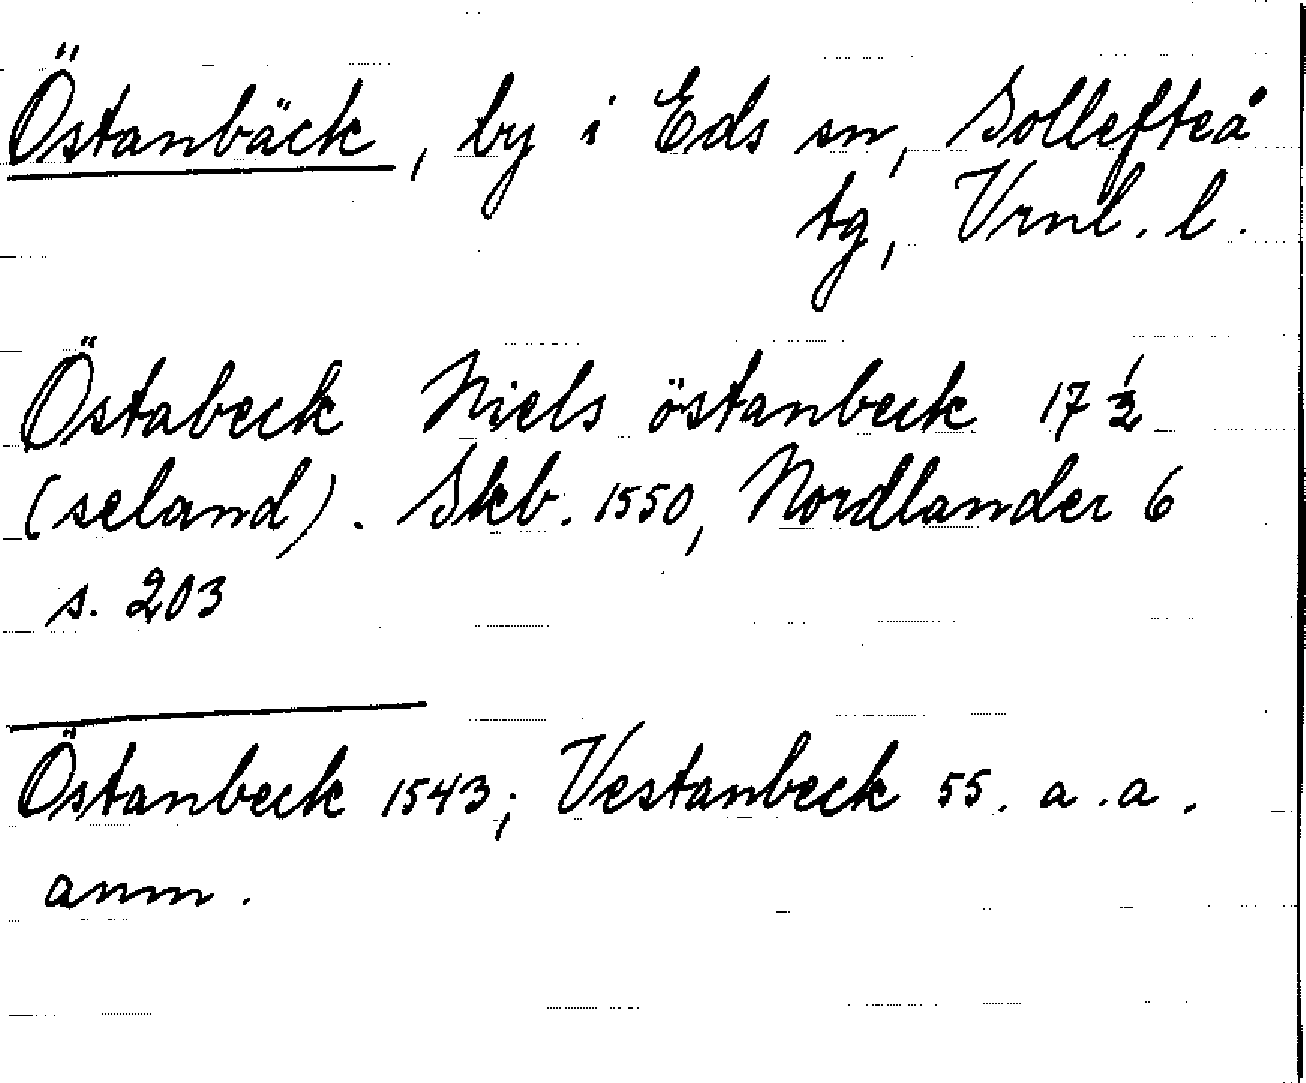 Östanbäck, by i Eds sn, Sollefteå
tg, Vrnl. l.
Östabeck Niels östanbeck 17 1/2
(seland). Skb. 1550, Nordlander 6
s. 203
Östanbeck 1543; Vestanbeck 55. a.a.
anm.